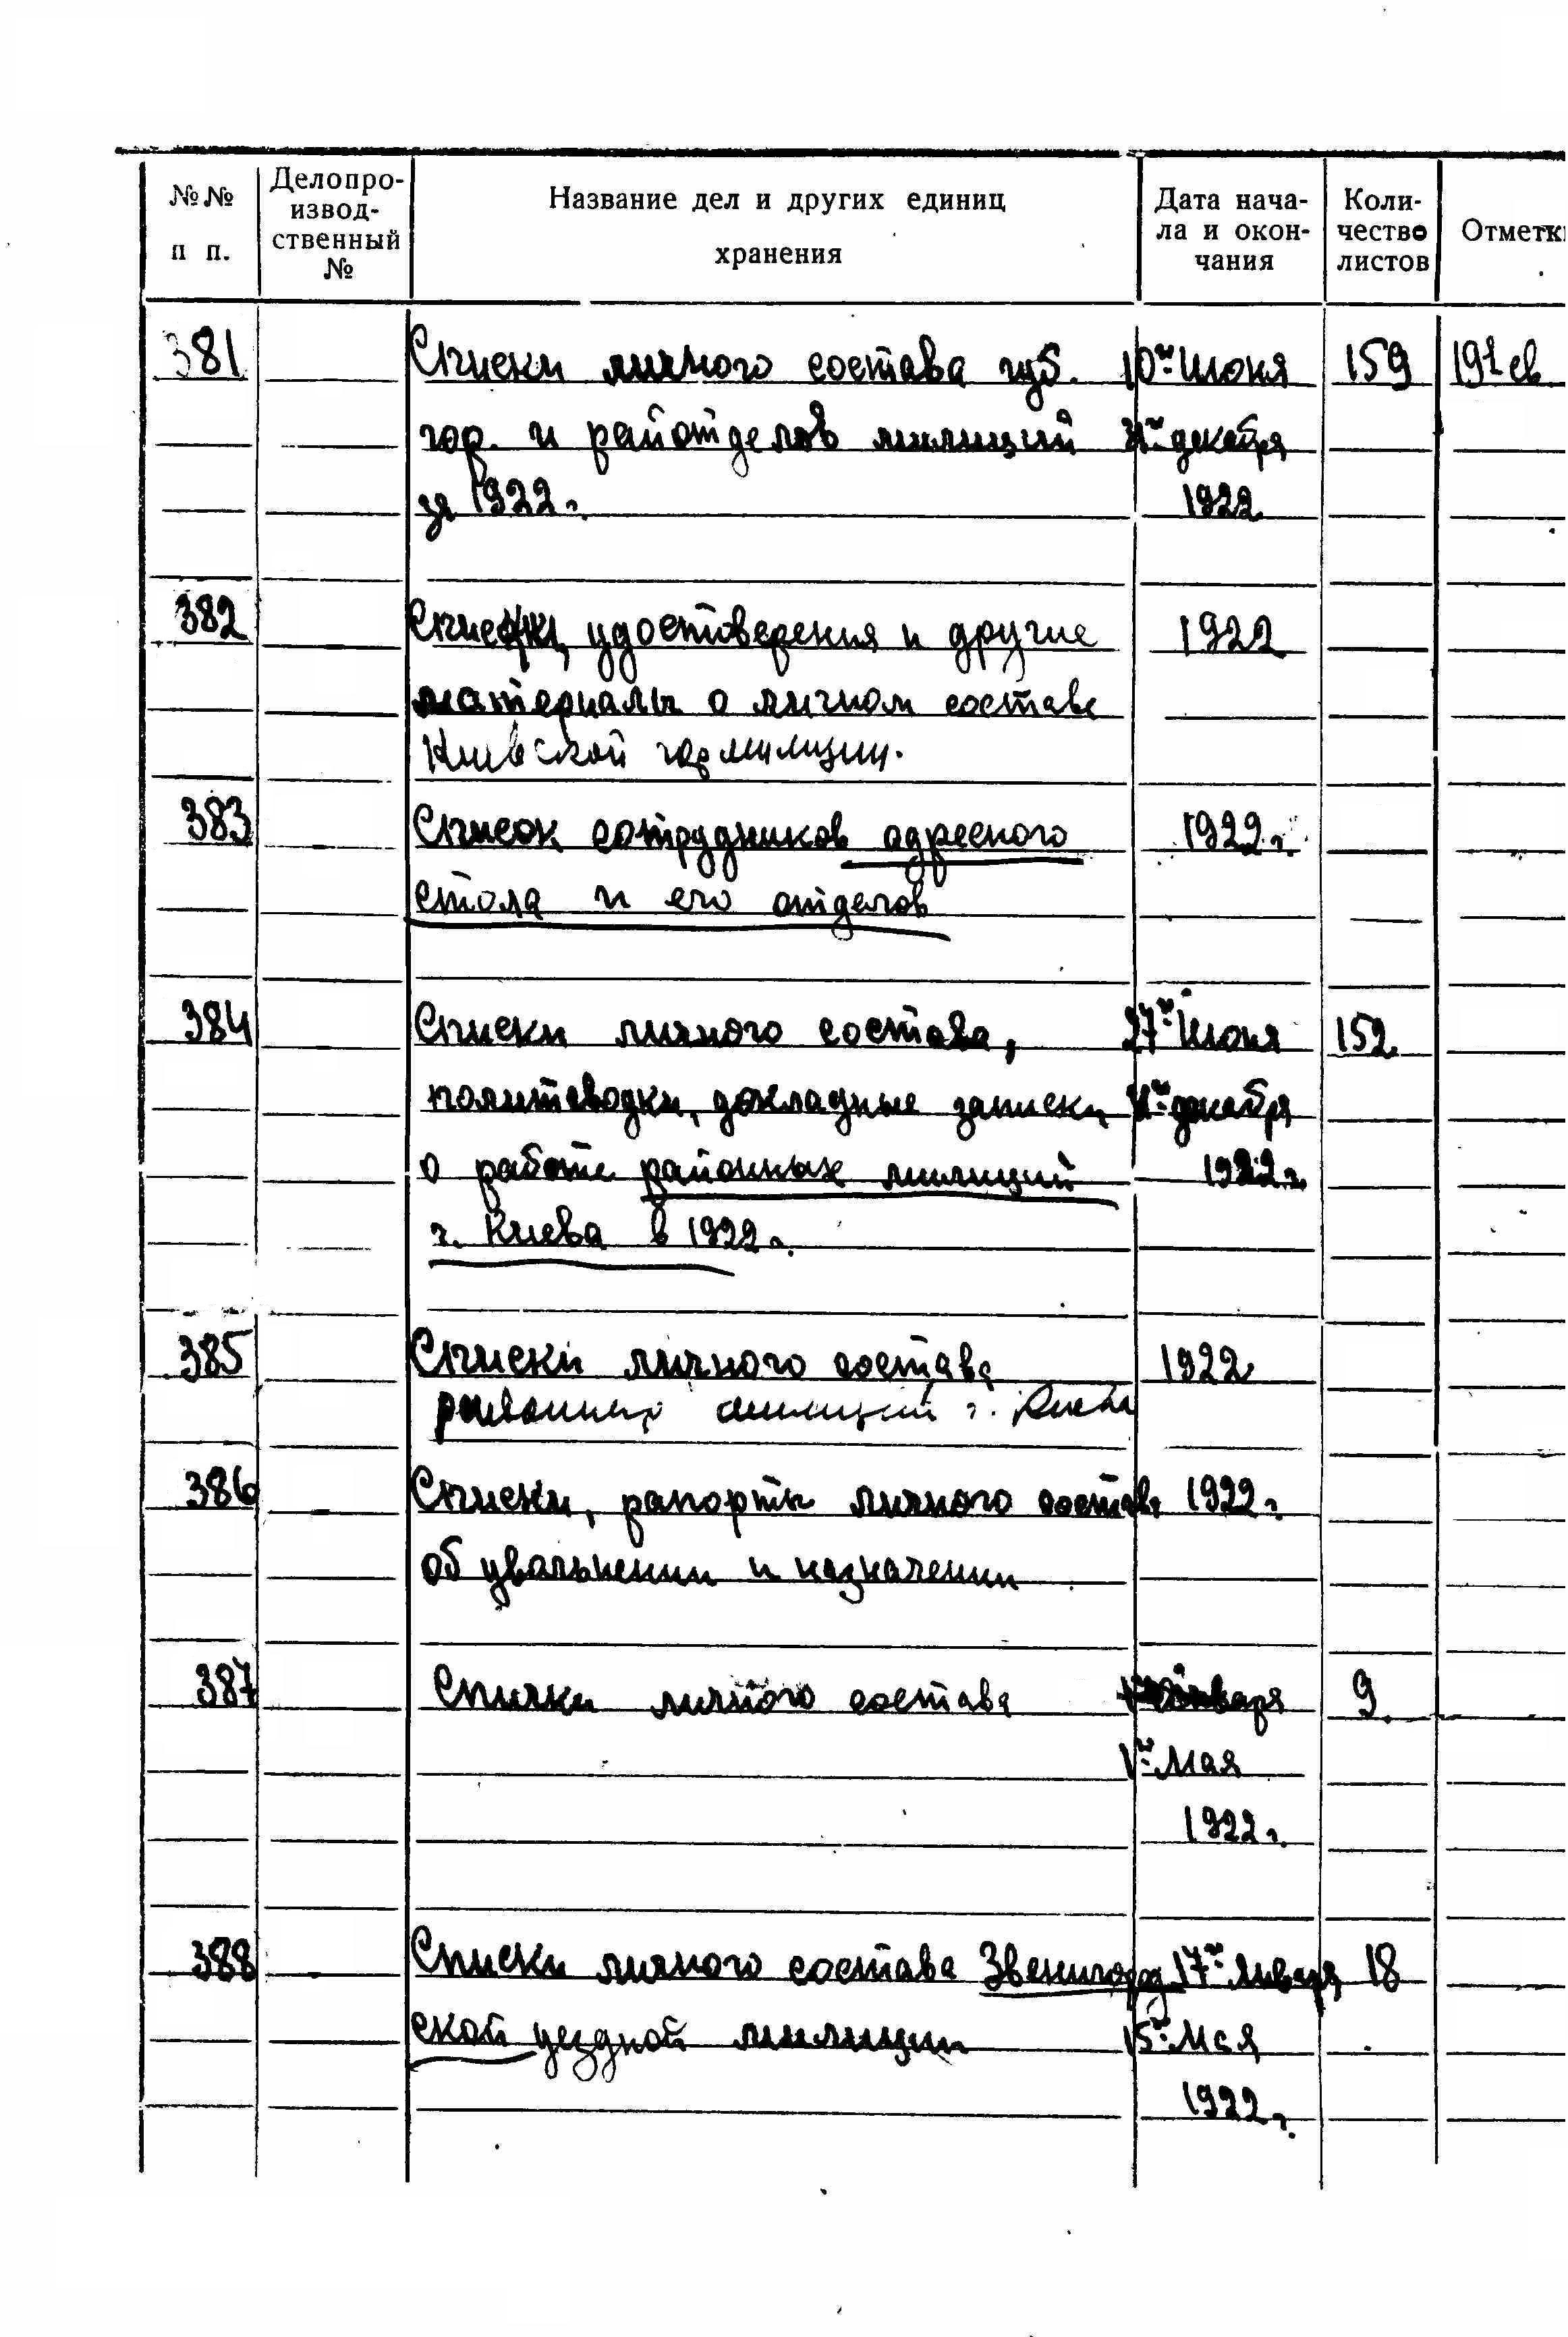 №№ п п.
Делопро-
извод-
ственный
№
Название дел и других единиц
хранения
Дата нача-
ла и окон-
чания
Коли-
чество
листов
Отметк
381 Списки личного состава губ. 10го Июня 159
гор. и райотделов милиций 31го декабря
за 1922 г. 1922
382 Списки, удостоверения и другие 1922
материалы о личном составе
Киевской гормилиции.
383 Список сотрудников адресного 1922 г.
стола и его отделов
384 Списки личного состава, 27го Июня 152
политсводки, докладные записки 31го декабря
о работе районных милиций 1922 г.
г. Киева в 1922 г.
385 Списки личного состава 1922
районных милиций г. Киева
386 Списки, рапорты личного состава 1922 г.
об увольнении и назначении
387 Списки личного состава января 9.
1го Мая
1922 г.
388 Списки личного состава Звенигород 17го января 18
ской уездной милиции 15го Мая
1922 г.